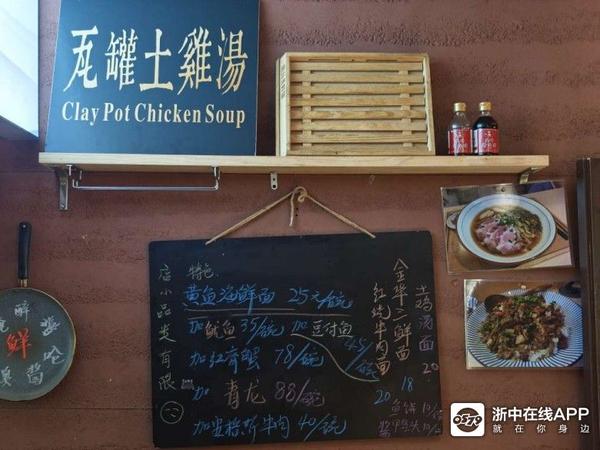 瓦罐土雞湯
Clay Pot Chicken Soup
店小品类有限
特色
黄鱼海鲜面 25元/碗
加鱿鱼35/碗 加豆付面
45/碗
加红膏蟹 78/碗
加 青龙 88/碗
牛肉 40/碗
金华三鲜面
18
红烧牛肉面
20
土鸡汤面
20
鲜
浙中在线APP
就在你身边